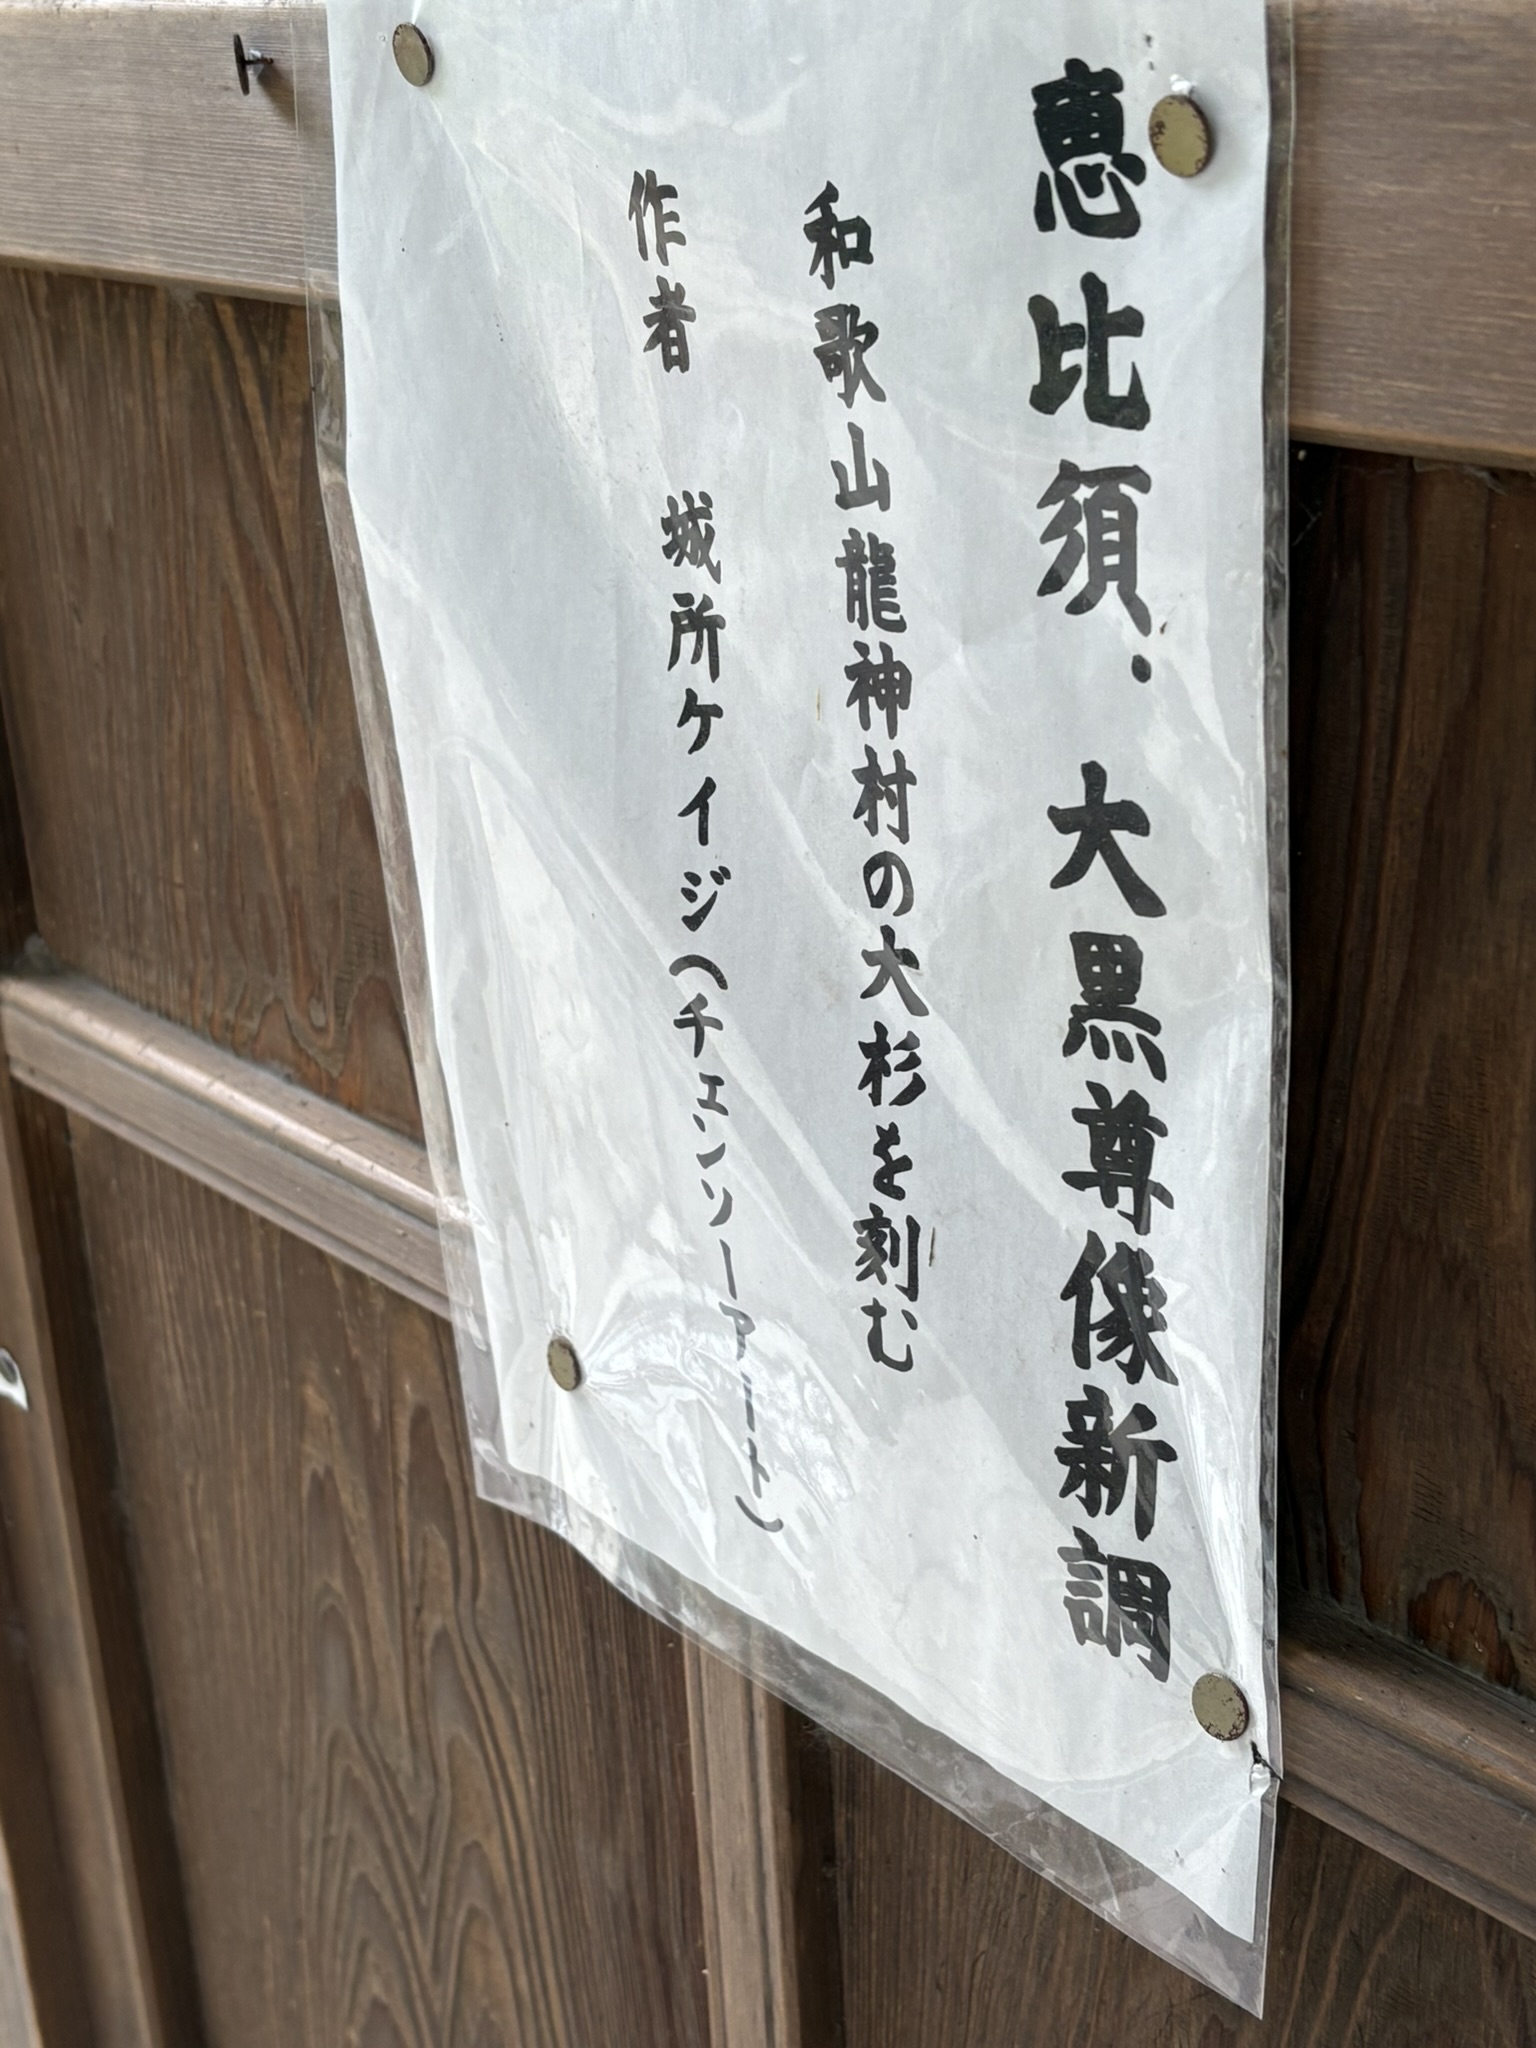 恵比須・大黒尊像新調
和歌山龍神村の大杉を刻む
作者 城所ケイジ(チェンソーアート)